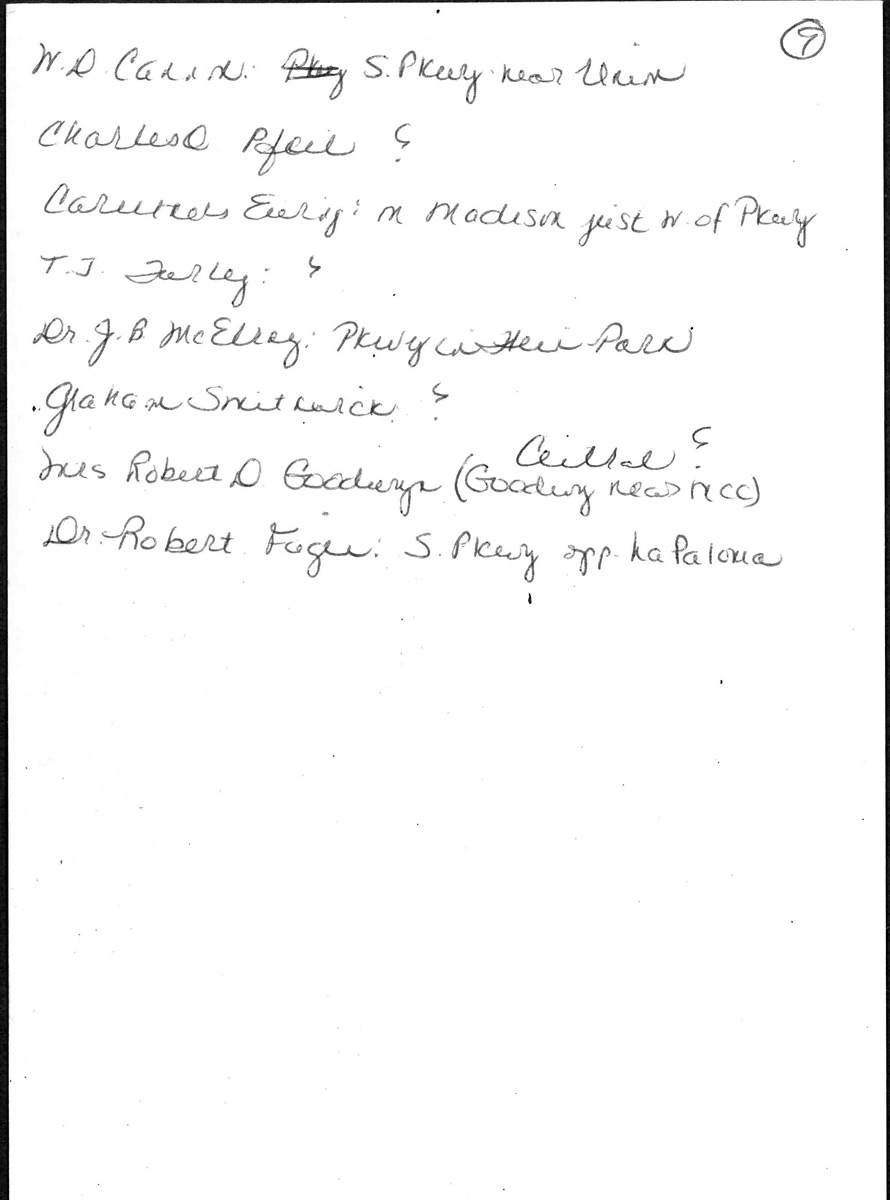 9
W.D. Cannon: Pkwy S. Pkwy near Union
Charles O Pfeil ?
Caruthers Ewing: on Madison just W. of Pkwy
T.J. Turley: ?
Dr. J.B. McElroy: Pkwy in Hein Park
Graham Smithwick ?
Central ?
Mrs Robert D Goodwyn (Goodwyn near MCC)
Dr. Robert Fagin: S. Pkwy opp. La Paloma